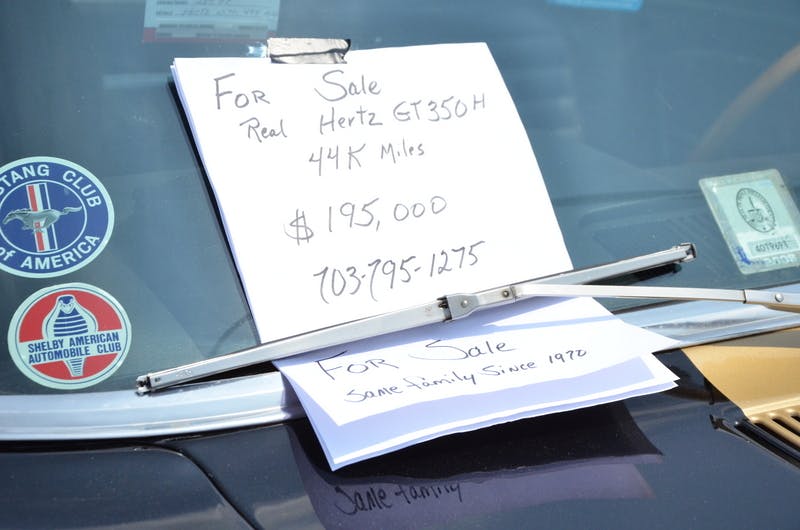 For Sale
Real Hertz GT350H
44K Miles
$195,000
703-795-1275
For Sale
Same family Since 1972
Same family
STANG CLUB
of AMERICA
SHELBY AMERICAN
AUTOMOBILE CLUB